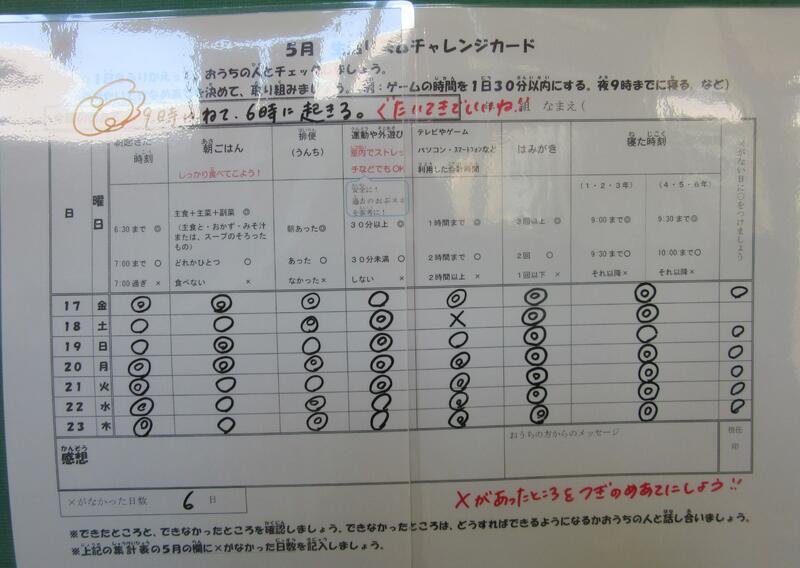 5月 チャレンジカード
おうちの人とチェック しょう。
を決めて、取り組みまし 例：ゲームの時間を1日30分以内にする。夜9時までに寝る。など）
9時にねて、6時に起きる。ぐたいてきでいいね!! 組 なまえ（
日
曜日
時刻
朝ごはん
しっかり食べてこよう！
排便
（うんち）
運動や外遊び
室内でストレッチなどでもOK
テレビやゲーム
パソコン・スマートフォンなど
利用した合計時間
はみがき
寝た時刻
×がない日に○をつけましょう
（1・2・3年）
（4・5・6年）
安全に！
過去のおぶスコ
を参考に！
6:30まで ◎
7:00まで ○
7:00過ぎ ×
主食＋主菜＋副菜 ◎
（主食と・おかず・みそ汁
または、スープのそろった
もの）
どれかひとつ ○
食べない ×
朝あった◎
あった ○
なかった×
30分以上 ◎
30分未満 ○
しない ×
1時間まで ◎
2時間まで ○
2時間以上 ×
3回以上 ◎
2回 ○
1回以下 ×
9:00まで◎
9:30まで○
それ以降×
9:30まで ◎
10:00まで○
それ以降×
17 金 ◎ ◎ ◎ ○ ◎ ◎ ◎ ○
18 土 ○ ○ ◎ ◎ × ◎ ◎
19 日 ◎ ○ ○ ◎ ○ ◎ ○ ○
20 月 ◎ ◎ ◎ ◎ ◎ ◎ ◎ ○
21 火 ◎ ○ ○ ◎ ◎ ◎ ◎ ○
22 水 ◎ ○ ◎ ○ ◎ ◎ ◎ ○
23 木 ◎ ○ ◎ ○ ◎ ◎ ◎ ○
感想
おうちの方からのメッセージ
担任
印
×がなかった日数 6 日
×があったところをつぎのめあてにしよう!!
※できたところと、できなかったところを確認しましょう。できなかったところは、どうすればできるようになるかおうちの人と話し合いましょう。
※上記の集計表の5月の欄に×がなかった日数を記入しましょう。